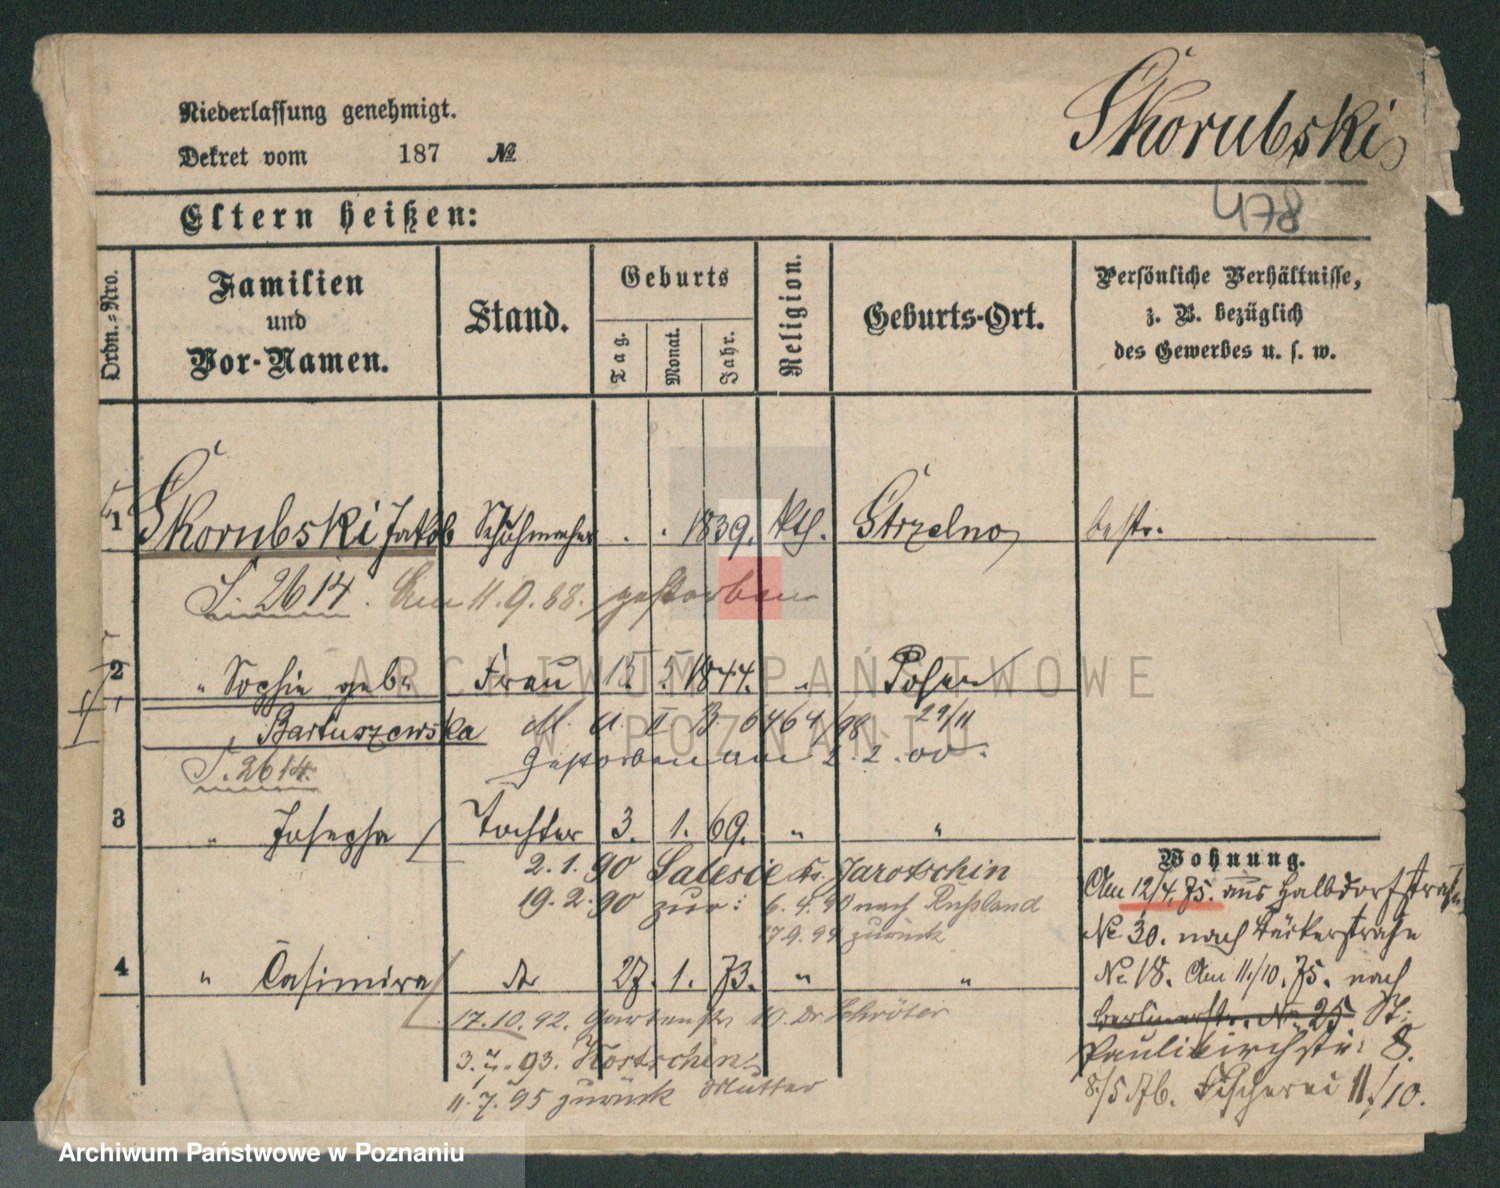 Niederlassung genehmigt.
Dekret vom 187 №
Skorubski
478
Eltern heißen:
Ordn.-Nro.
Familien und Vor-Namen.
Stand.
Geburts
Tag.
Monat.
Jahr.
Religion.
Geburts-Ort.
Persönliche Verhältnisse, z. B. bezüglich des Gewerbes u. s. w.
1 Skorubski Jakob Schuhmacher . . 1839. kth. Strzelno bestr.
S. 2614. Am 11.9.88. gestorben
2 " Sophie geb. Frau 15. 5. 1844. " Posen
Bartuszewska 6464/98 29/11
S. 2614. Gestorben am 2.2.00.
3 " Josepha Tochter 3. 1. 69. " "
2.1.90 Salesie Kr. Jarotschin
19.2.90 zur: 6.4.90 nach Rußland
17.9.99 zurück
4 " Casimira dto 27. 1. 73. " "
17.10.92. Gartenstr. 10. Dr Schröter
3.7.93. Kortschin
11.7.95 zurück Mutter
Wohnung.
Am 12/4.75. aus Halbdorfstraße
No 30. nach Bäckerstraße
No 18. Am 11./10.75. nach
Berlinerstr. No 25 St:
Paulikirchstr: 8.
8./5 Ab. Fischerei 11/10.
ARCHIWUM PAŃSTWOWE
W POZNANIU
Archiwum Państwowe w Poznaniu